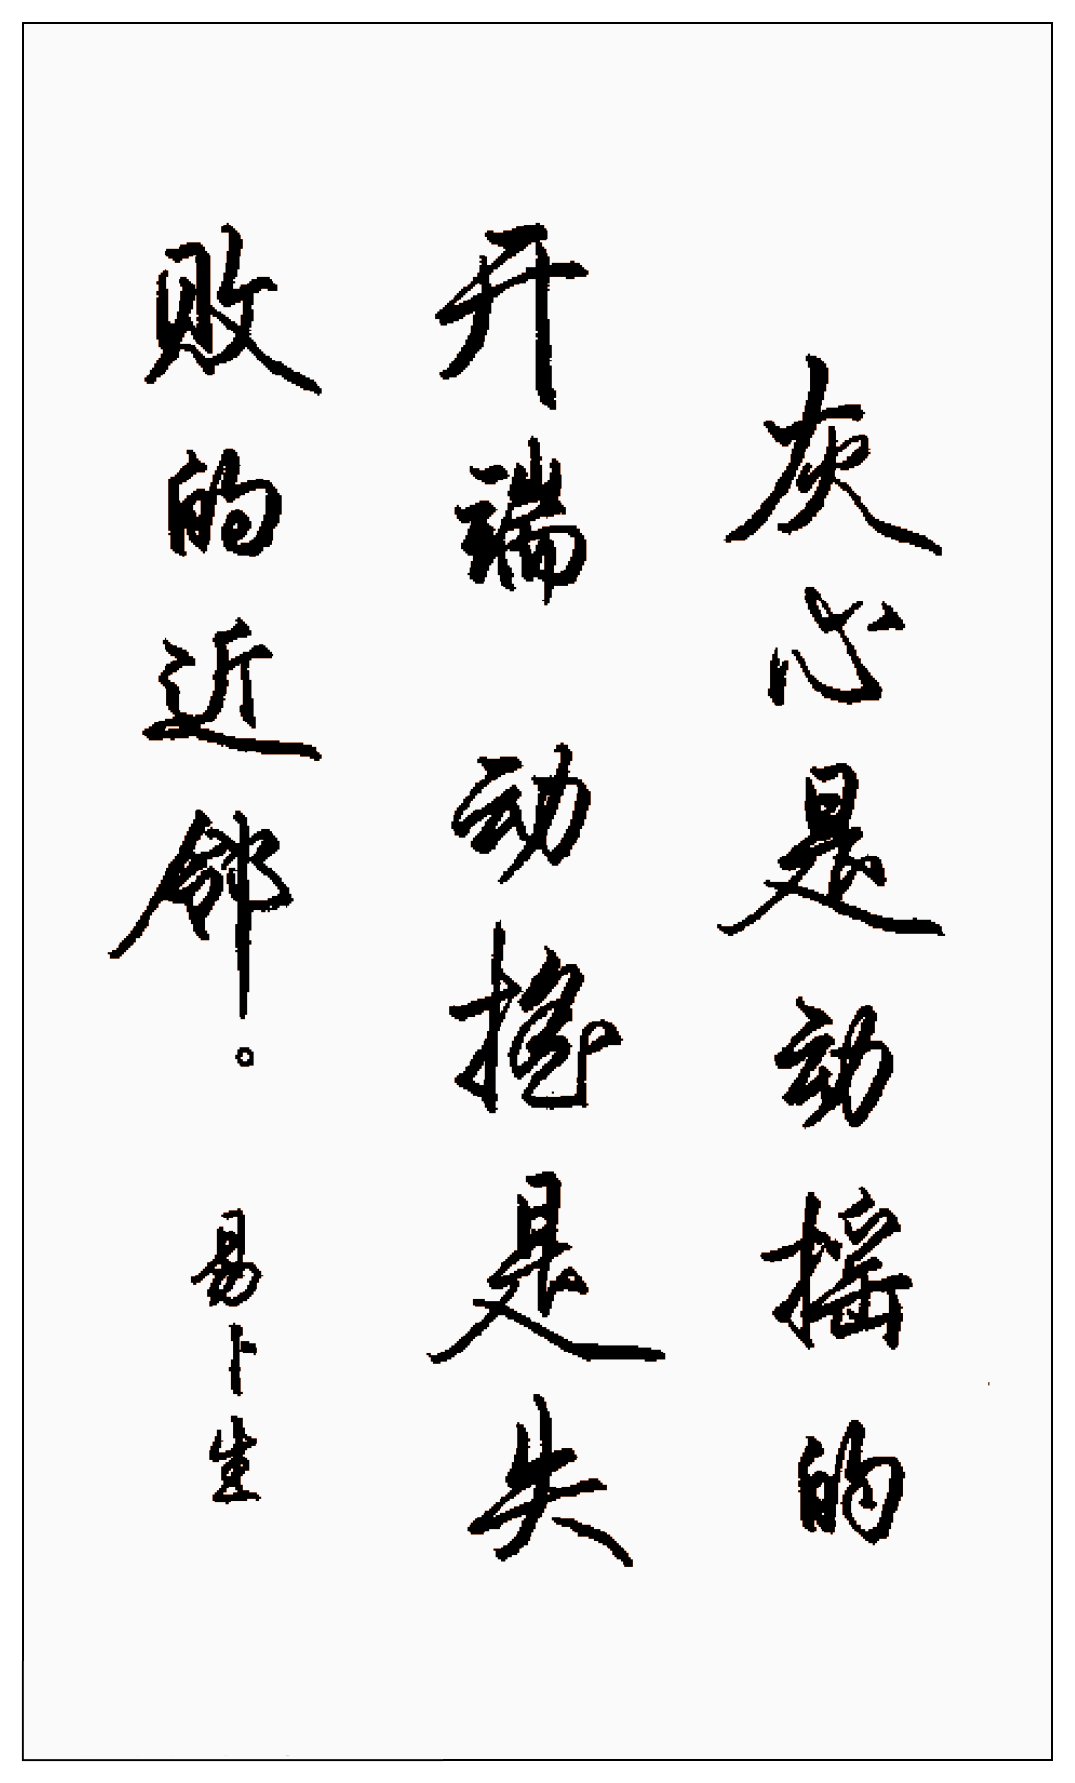 灰心是动摇的
开端 动摇是失
败的近邻。 易卜生